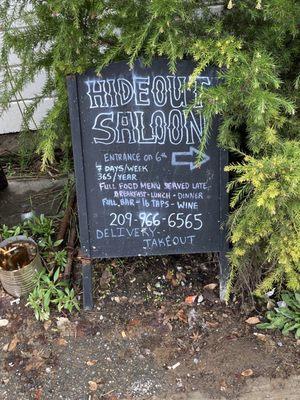 HIDEOUT
SALOON
ENTRANCE on 6th
7 DAYS/WEEK
365/YEAR
FULL FOOD MENU SERVED LATE
BREAKFAST - LUNCH - DINNER
FULL BAR - 16 TAPS - WINE
209-966-6565
DELIVERY
TAKEOUT